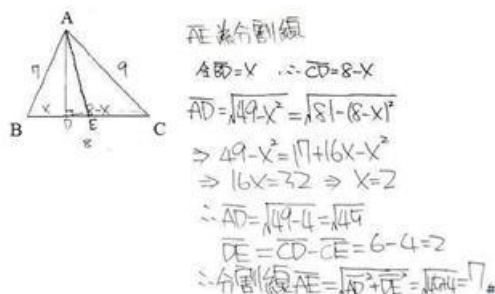 A
7
9
x
8-x
B
D
E
C
8
AE為分割線
令BD=x ∴CD=8-x
AD=√49-x²=√81-(8-x)²
⇒ 49-x²=17+16x-x²
⇒ 16x=32 ⇒ x=2
∴AD=√49-4=√45
DE=CD-CE=6-4=2
∴分割線AE=√AD²+DE²=√45+4=7#